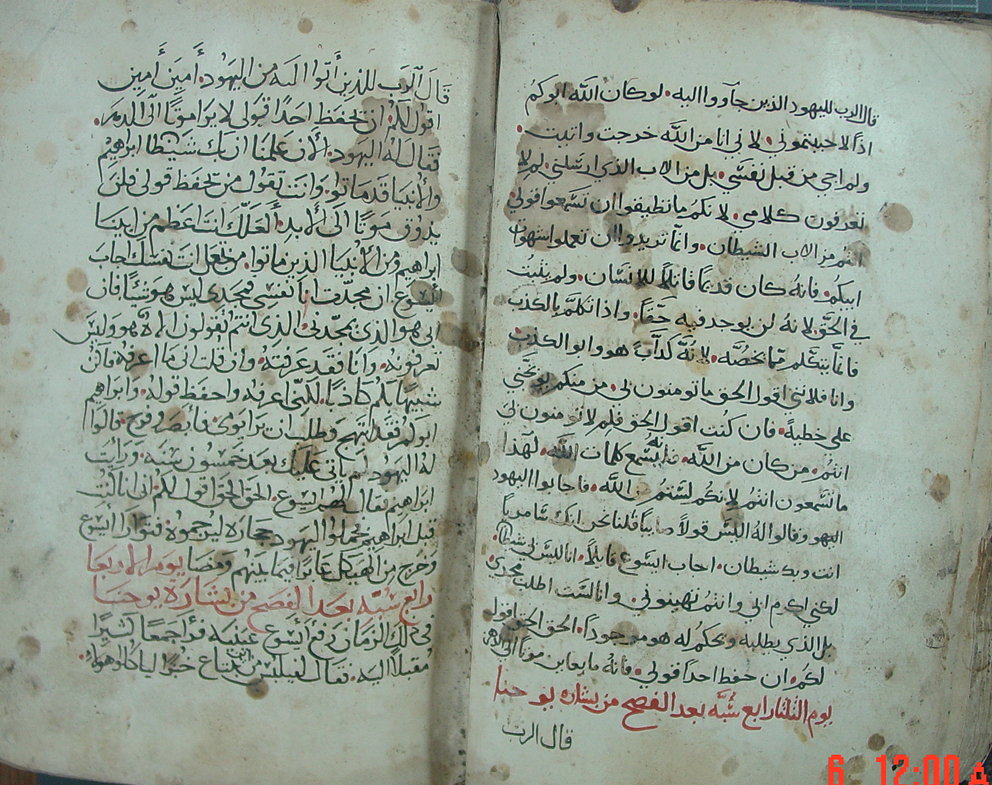 قال الرب لليهود الذين جاووا اليه. لو كان الله ابوكم
اذًا لاحببتموني. لاني انا من الله خرجت واتيت
ولم اجي من قبل نفسي. بل من الاب الذي ارسلني. لم لا
تعرفون كلامي. لانكم ما تطيقوا ان تسمعوا قولي.
انتم من الاب الشيطان. وانما تريدوا ان تعملوا شهوات
ابيكم. فانه كان قديمًا قاتلًا للانسان. ولم يثبت
في الحق لانه لن يوجد فيه حقًا. واذا تكلم بالكذب
فانما يتكلم مما يخصه. لانه كذاب هو وابو الكذب
وانا فلانني اقول الحق ما تومنون لي. من منكم يوبخني
على خطية. فان كنت اقول الحق فلم لا تومنون لي
انتم. من كان من الله. فانه يسمع كلمات الله. لهذا
ما تسمعون انتم لانكم لستم من الله. فاجابوا اليهود
وقالوا له اليس قولًا صايبًا قلنا نحن انك سامريًا
انت وبك شيطان. اجاب ايسوع قايلًا. انا ليس لي شيطان
لكني اكرم ابي وانتم تهينوني. وانا لست اطلب مجدي
بل الذي يطلبه ويحكم له هو موجودًا. الحق الحق اقول
لكم. ان حفظ احدًا قولي. فانه ما يعاين موتًا الى الدهر
يوم الثلثا رابع سُبّه بعد الفصح من بشاره يوحنا
قال الرب
قال الرب للذين أتوا اليه من اليهود. أمين أمين
اقول لكم ان يحفظ احدًا قولي لا يرا موتًا الى الدهر.
فقال له اليهود. الان علمنا ان بك شيطانًا ابراهيم
والانبيا قد ماتوا. وانت تقول من يحفظ قولي فلن
يذوق موتًا الى الابد. ألعلك انت اعظم من ابينا
ابراهيم ومن الانبيا الذين ماتوا. من تجعل انت نفسك اجاب
ايسوع ان مجدت انا نفسي فمجدي ليس هو شيًا فان
ابي هو الذي يمجدني الذي انتم تقولون انه الاهنا هو وليس
تعرفونه. وانا فقد عرفته. وان قلت اني ما اعرفه فاكن
شبيهًا بكم كاذبًا. لكني اعرفه واحفظ قوله. وابراهيم
ابوكم فقد ابتهج وطلب ان يرا يومي. فابصر وفرح. قالوا
له اليهود لم ياتي عليك بعد خمسون سنه. ورايت
ابراهيم. فقال لهم ايسوع. الحق الحق اقول لكم اني انا كنت
قبل ابراهيم. فحملوا اليهود حجاره ليرجموه فتوارا ايسوع
وخرج من الهيكل عابرًا فيما بينهم ومضا يوم الاربعا
رابع سُبّه بعد الفصح من بشارة يوحنا
في ذلك الزمان رفع ايسوع عينيه فرا جمعًا كثيرًا
مقبلًا اليه. فقال لفيلبس من اين نبتاع خبزًا لياكلوا هولا.
6 12:00